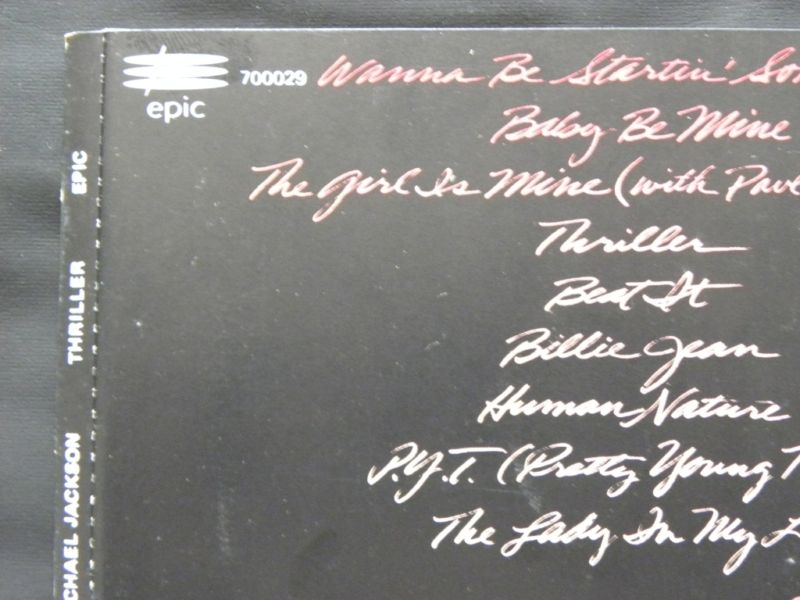 epic
700029
Wanna Be Startin' Som
Baby Be Mine
The Girl Is Mine (with Paul
Thriller
Beat It
Billie Jean
Human Nature
P.Y.T. (Pretty Young T
The Lady In My L
CHAEL JACKSON THRILLER EPIC